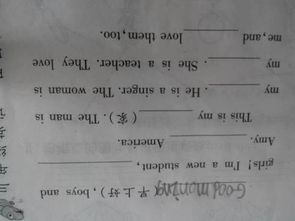 Good morning (早上好), boys and
girls! I'm a new student, ________
Amy. ________ America.
This is my ________ (家). The man is
my ________. He is a singer. The woman is
my ________. She is a teacher. They love
me, and ________ love them, too.